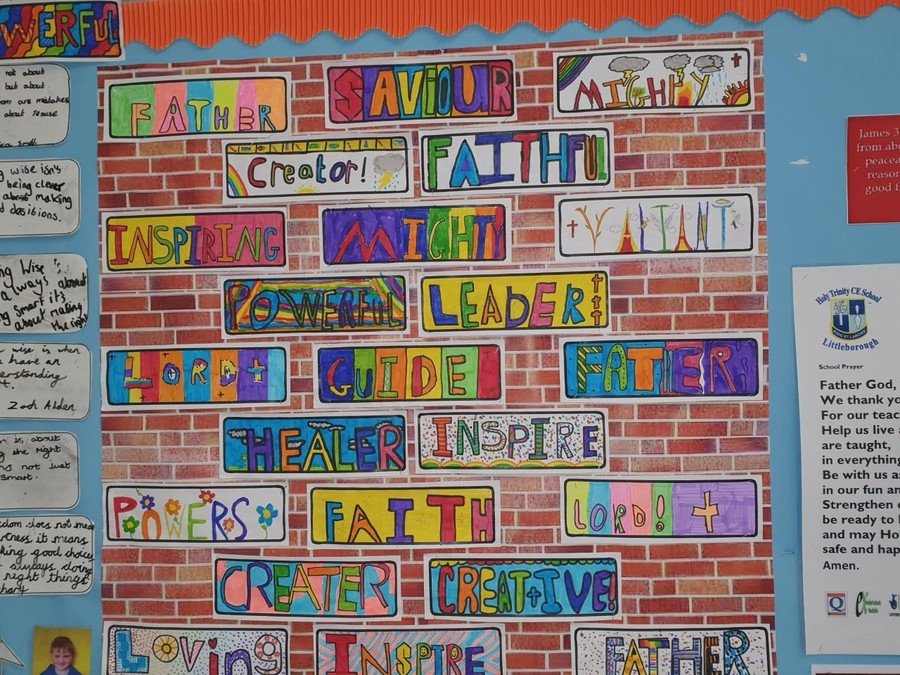 WERFUL
not about
but about
are mistakes
about Jesuse
wise isn't
being clever
about making
desitions.
Wise is
always about
smart it's
about making
the right
wise is when
have an
understanding
Zach Alden
is about
the right
not just
smart.
does not mean
it means
good choices
always doing
right things
FATHER
SAVIOUR
MIGHTY
Creator!
FAITHFUL
INSPIRING
MIGHTY
VALIANT
POWERFUL
LEADER
LORD
GUIDE
FATHER!
HEALER
INSPIRE
POWERS
FAITH
LORD!
CREATER
CREATIVE!
Loving
INSPIRE
FATHER
James 3
from abo
peacea
reason
good f
Holy Trinity CE School
Littleborough
School Prayer
Father God,
We thank yo
For our teac
Help us live a
are taught,
in everything
Be with us as
in our fun an
Strengthen o
be ready to l
and may Ho
safe and hap
Amen.